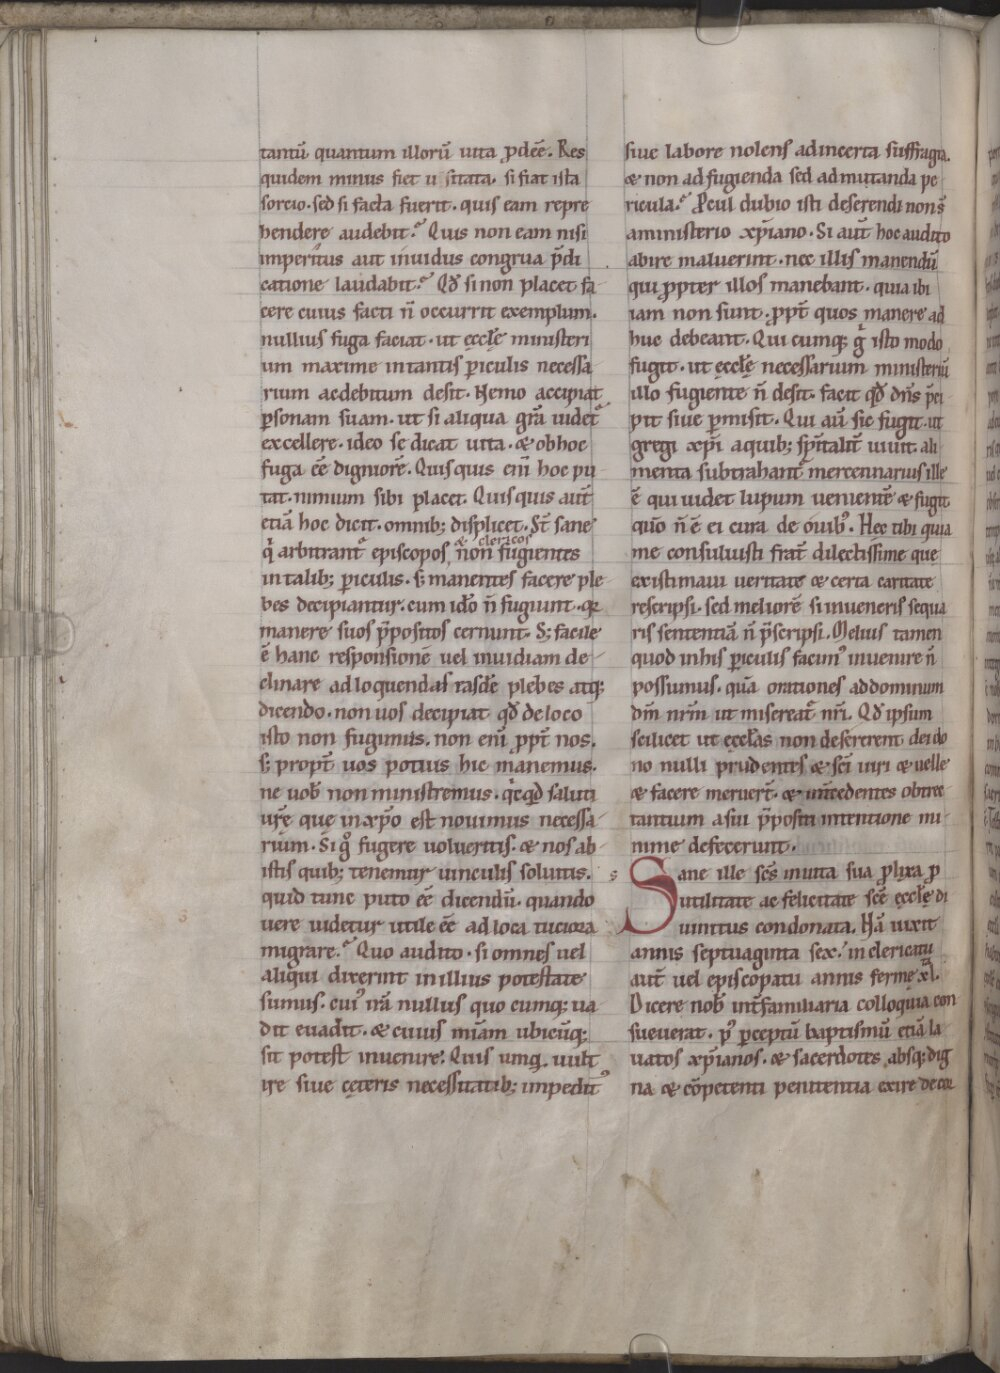 tantū quantum illorū uita ꝓdēē. Res
quidem minus fiet u sitata. si fiat ista
sortio. sed si facta fuerit. quis eam repre
hendere audebit? Quis non eam nisi
imperitus aut inuidus congrua p̄di
catione laudabit? Qd̄ si non placet fa
cere cuius facti n̄ occurrit exemplum.
nullius fuga faciat. ut ęcclę̄ ministeri
um maxime in tantis ꝑiculis necessa
rium ac debitum desit. Nemo accipiat
ꝑsonam suam. ut si aliqua gr̄a uidet᷑
excellere. ideo se dicat uita. & ob hoc
fuga ēē digniorē. Quisquis eni hoc pu
tat. nimium sibi placet. Quisquis aut̄
etiā hoc dicit. omnib; displicet. St̄ sane
& clericos
q̇ arbitrant᷑ episcopos non fugientes
in talib; ꝑiculis. s; manentes facere ple
bes decipiantur. cum id̄o n̄ fugiunt. qr̄
manere suos p̄positos cernunt. S; facile
ē hanc responsionē uel inuidiam de
clinare ad loquendas easdē plebes atq;
dicendo. non uos decipiat qd̄ de loco
isto non fugimus. non eni ꝓpt̄ nos.
s; propt̄ uos potius hic manemus.
ne uob̄ non ministremus. q̇cqd̄ saluti
ur̄ę quę in xp̄o est nouimus necessa
rium. Si g̊ fugere uolueritis. & nos ab
istis quib; tenemur uinculis soluitis.
quid tunc puto ēē dicendū. quando
uere uidetur utile ēē ad loca tuciora
migrare? Quo audito. si omnes uel
aliqui dixerint in illius potestate
sumus. cui᷒ irā nullus quo cumq; ua
dit euadit. & cuius mīam ubicūq;
sit potest inuenire. Quis umq. uult
ire siue cęteris necessitatib; impedit᷑
siue labore nolens ad incerta suffragia.
& non ad fugienda sed ad mutanda pe
ricula? Ꝓcul dubio isti deserendi non s̄
a ministerio xp̄iano. Si aut̄ hoc audito
abire maluerint. nec illis manendū
qui ꝓpter illos manebant. quia ibi
iam non sunt. ꝓpt̄ quos manere ad
huc debeant. Qui cumq; g̊ isto modo
fugit. ut ęcclę̄ necessarium ministeriū
illo fugiente n̄ desit. facit qd̄ dn̄s p̄ci
pit siue ꝑmisit. Qui aū sic fugit. ut
gregi xp̄i a quib; sp̄italit̄ uiuit. ali
menta subtrahant᷑ mercennarius ille
ē qui uidet lupum uenientē & fugit
qūo n̄ ē ei cura de ouib᷒. Hec tibi quia
me consuluisti frat̄ dilectissime que
existimaui ueritate & certa caritate
rescripsi. sed meliorē si inueneris sequa
ris sententiā n̄ p̄scripsi. Melius tamen
quod in his ꝑiculis facim᷒ inuenire n̄
possumus. quā orationes ad dominum
dm̄ nrm̄ ut misereat᷑ nr̄i. Qd̄ ipsum
scilicet ut ęcclas non desererent dei do
no nulli prudentes & sc̄i uiri & uelle
& facere meruert̄. & int̄cedentes obtrec
tantium a sui p̄positi intentione mi
nime defecerunt.
Sane ille sc̄s in uita sua ꝓlixa ꝓ
utilitate ac felicitate scē ęcclę̄ di
uinitus condonata. Nā uixit
annis septuaginta sex. in clericatu
aut̄ uel episcopatu annis fermę xl.
Dicere nob̄ int̄ familiaria colloquia con
sueuerat. p᷒ ꝑceptū baptismū etiā la
uatos xp̄ianos. & sacerdotes absq; dig
na & cōpetenti penitentia exire de cor